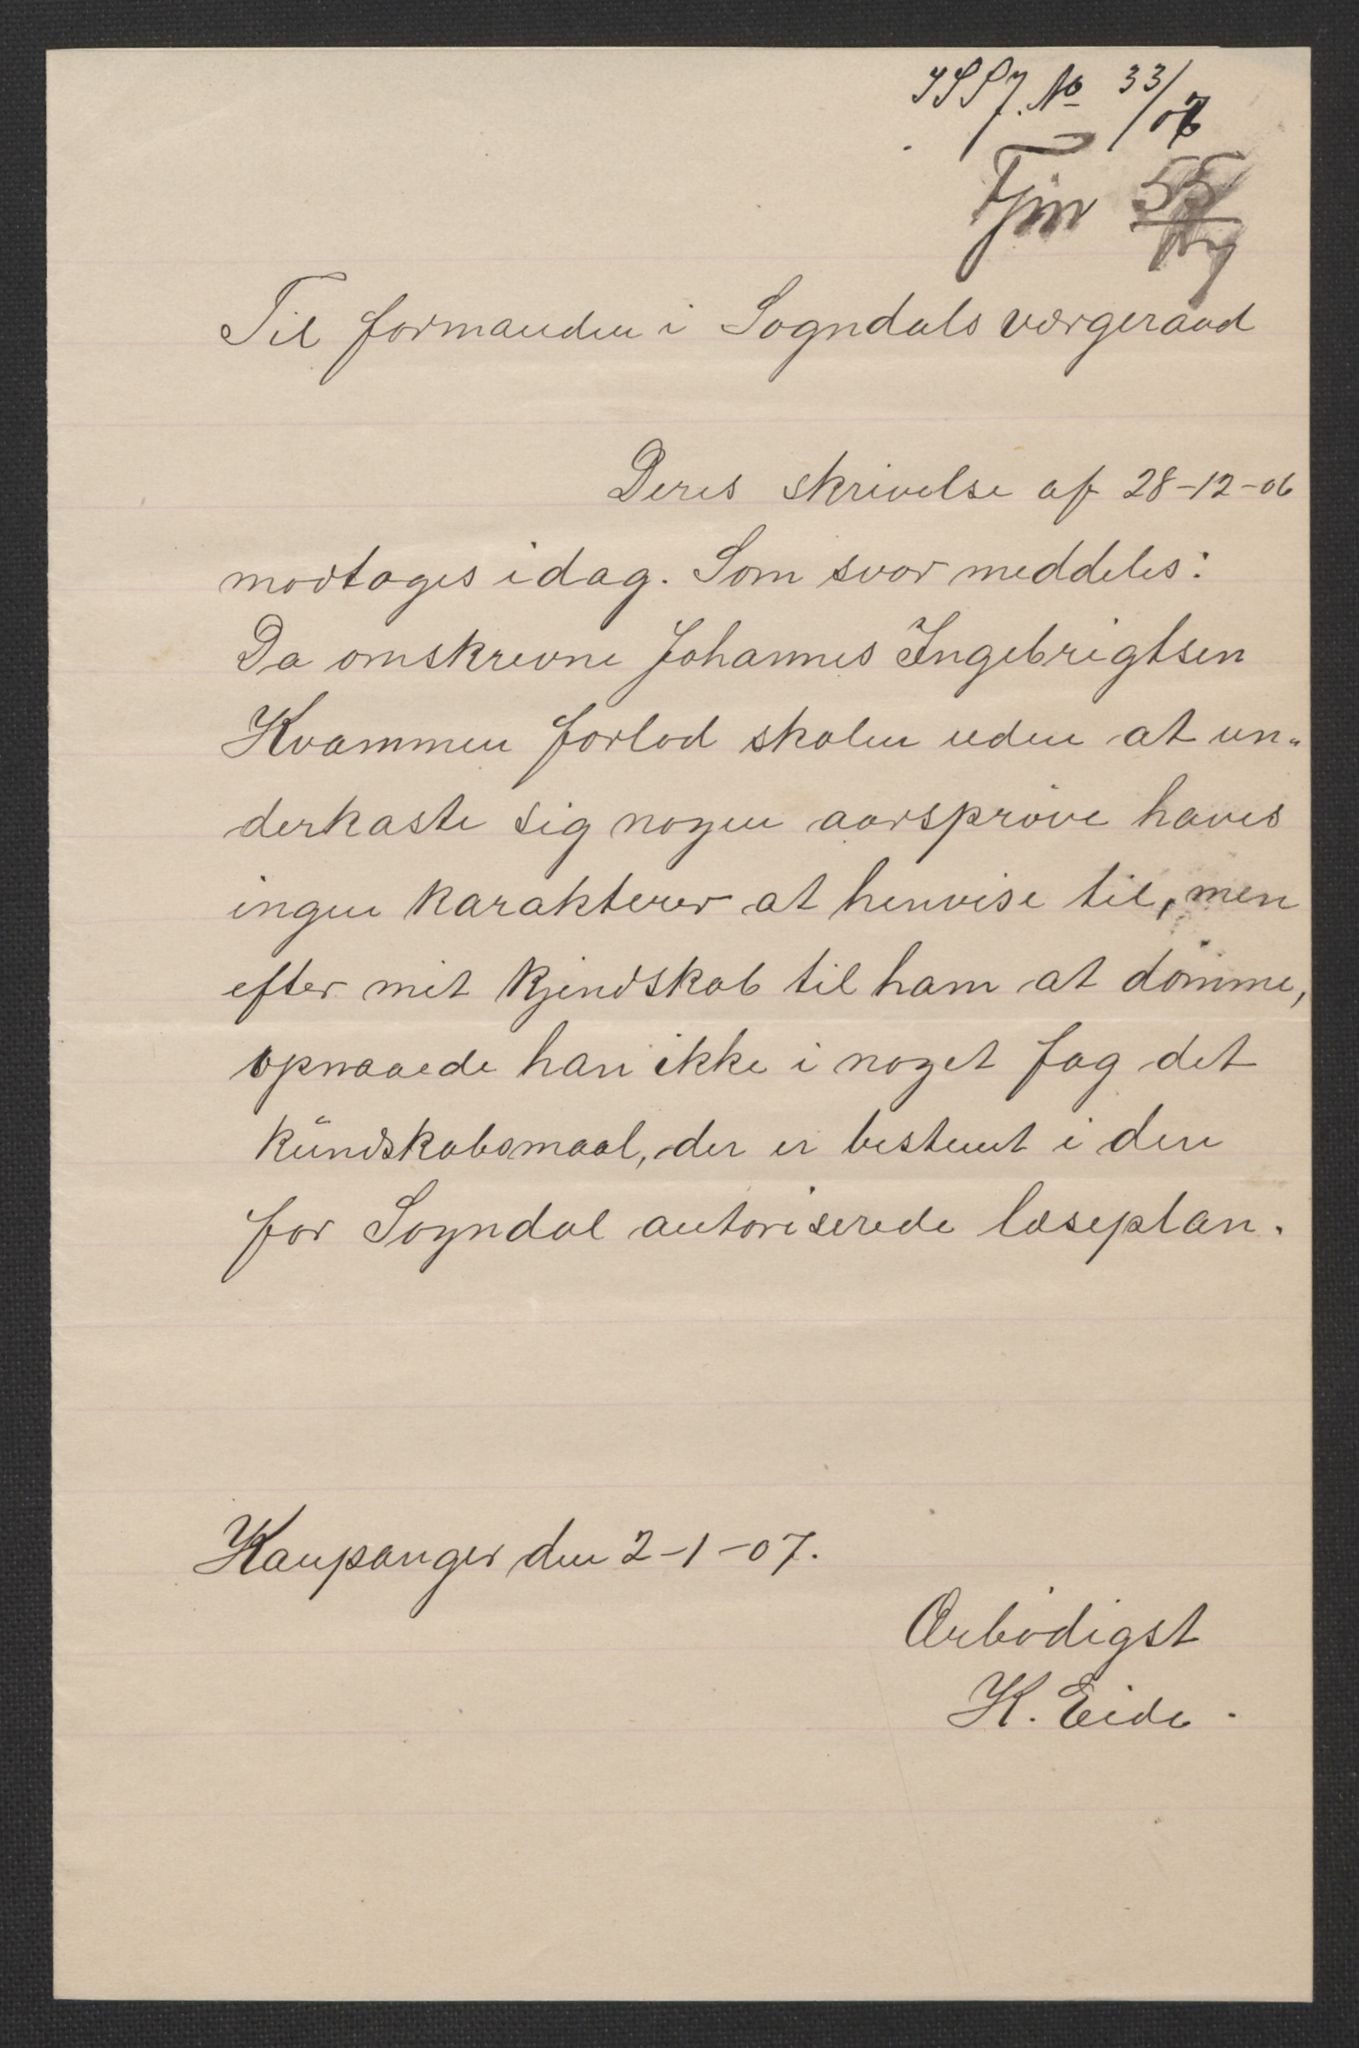 J. No 33/07
Til formanden i Sogndals værgeraad
Deres skrivelse af 28-12-06
modtages idag. Som svar meddeles:
Da omskrevne Johannes Ingebrigtsen
Kvammen forlod skolen uden at un-
derkaste sig nogen aarsprøve haves
ingen karakterer at henvise til, men
efter mit kjendskab til ham at dömme,
opnaaede han ikke i noget fag det
kündskabsmaal, der er bestemt i den
for Sogndal autoriserede læseplan.
Kaupanger den 2-1-07.
Ærbödigst
K. Eide.